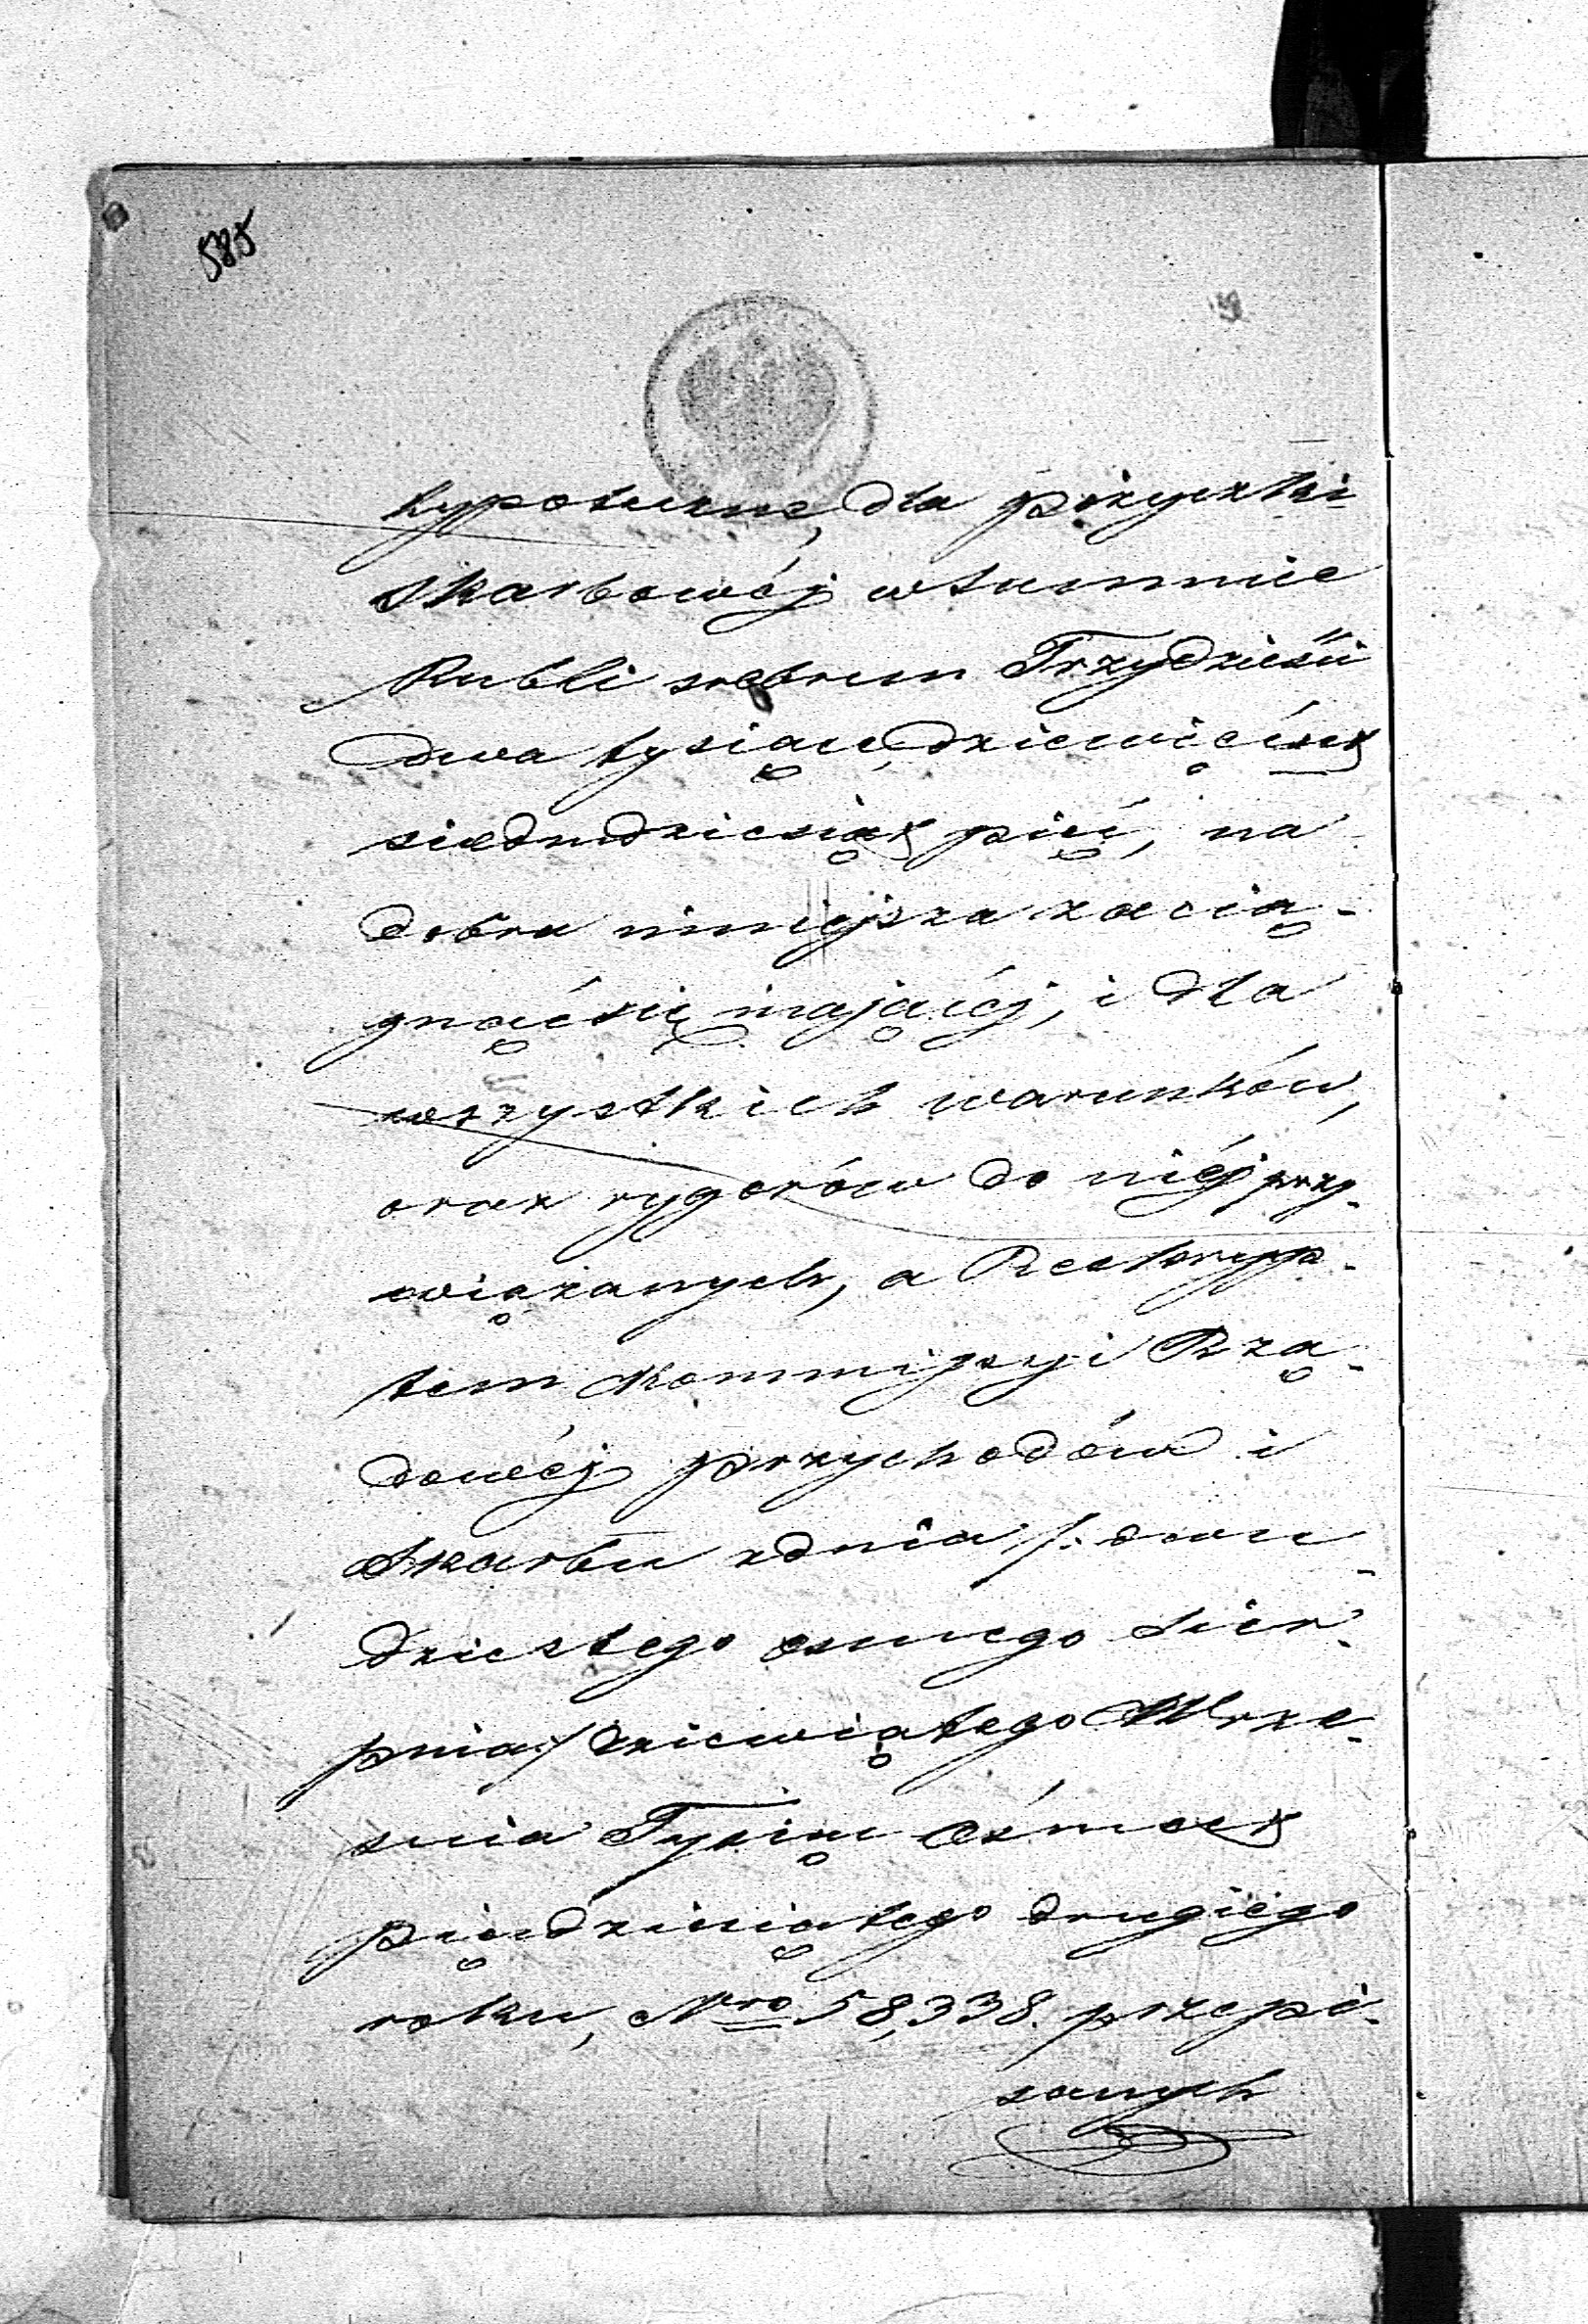 585
hypoteczne, dla pożyczki
Skarbowéj w summie
Rubli srebrem Trzydzieści
dwa tysiące, dziewięćset
siedmdziesiąt pięć, na
dobra niniejsze zacią-
gnąć się mającéj, i dla
wszystkich warunków,
oraz rygorów do niéj przy-
wiązanych, a Reskryp-
tem Kommissyi Rzą-
dowéj przychodów i
Skarbu z dnia /: dwu-
dziestego osmego Sier-
pnia :/ dziewiątego Wrze-
snia Tysiąc Ośmset
pięćdziesiątego drugiego
roku, Nro 58,338. przepi-
sanych